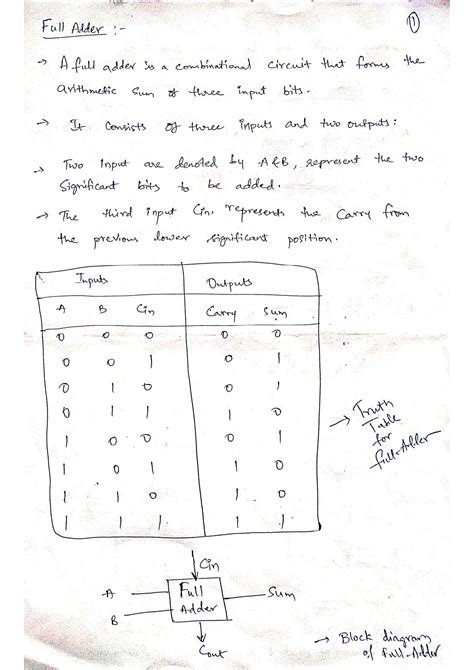 Full Adder :-
11
→ A full adder is a combinational circuit that forms the
arithmetic sum of three input bits.
→ It consists of three inputs and two outputs:
→ Two input are denoted by A&B, represent the two
Significant bits to be added.
→ The third input Cin, represents the carry from
the previous lower significant position.
Inputs Outputs
A B Cin Carry Sum
0 0 0 0 0
0 0 1 0 1
0 1 0 0 1
0 1 1 1 0
1 0 0 0 1
1 0 1 1 0
1 1 0 1 0
1 1 1 1 1
→ Truth
Table
for
full-Adder
Cin
A Full Sum
B Adder
Cout
→ Block diagram
of full-Adder